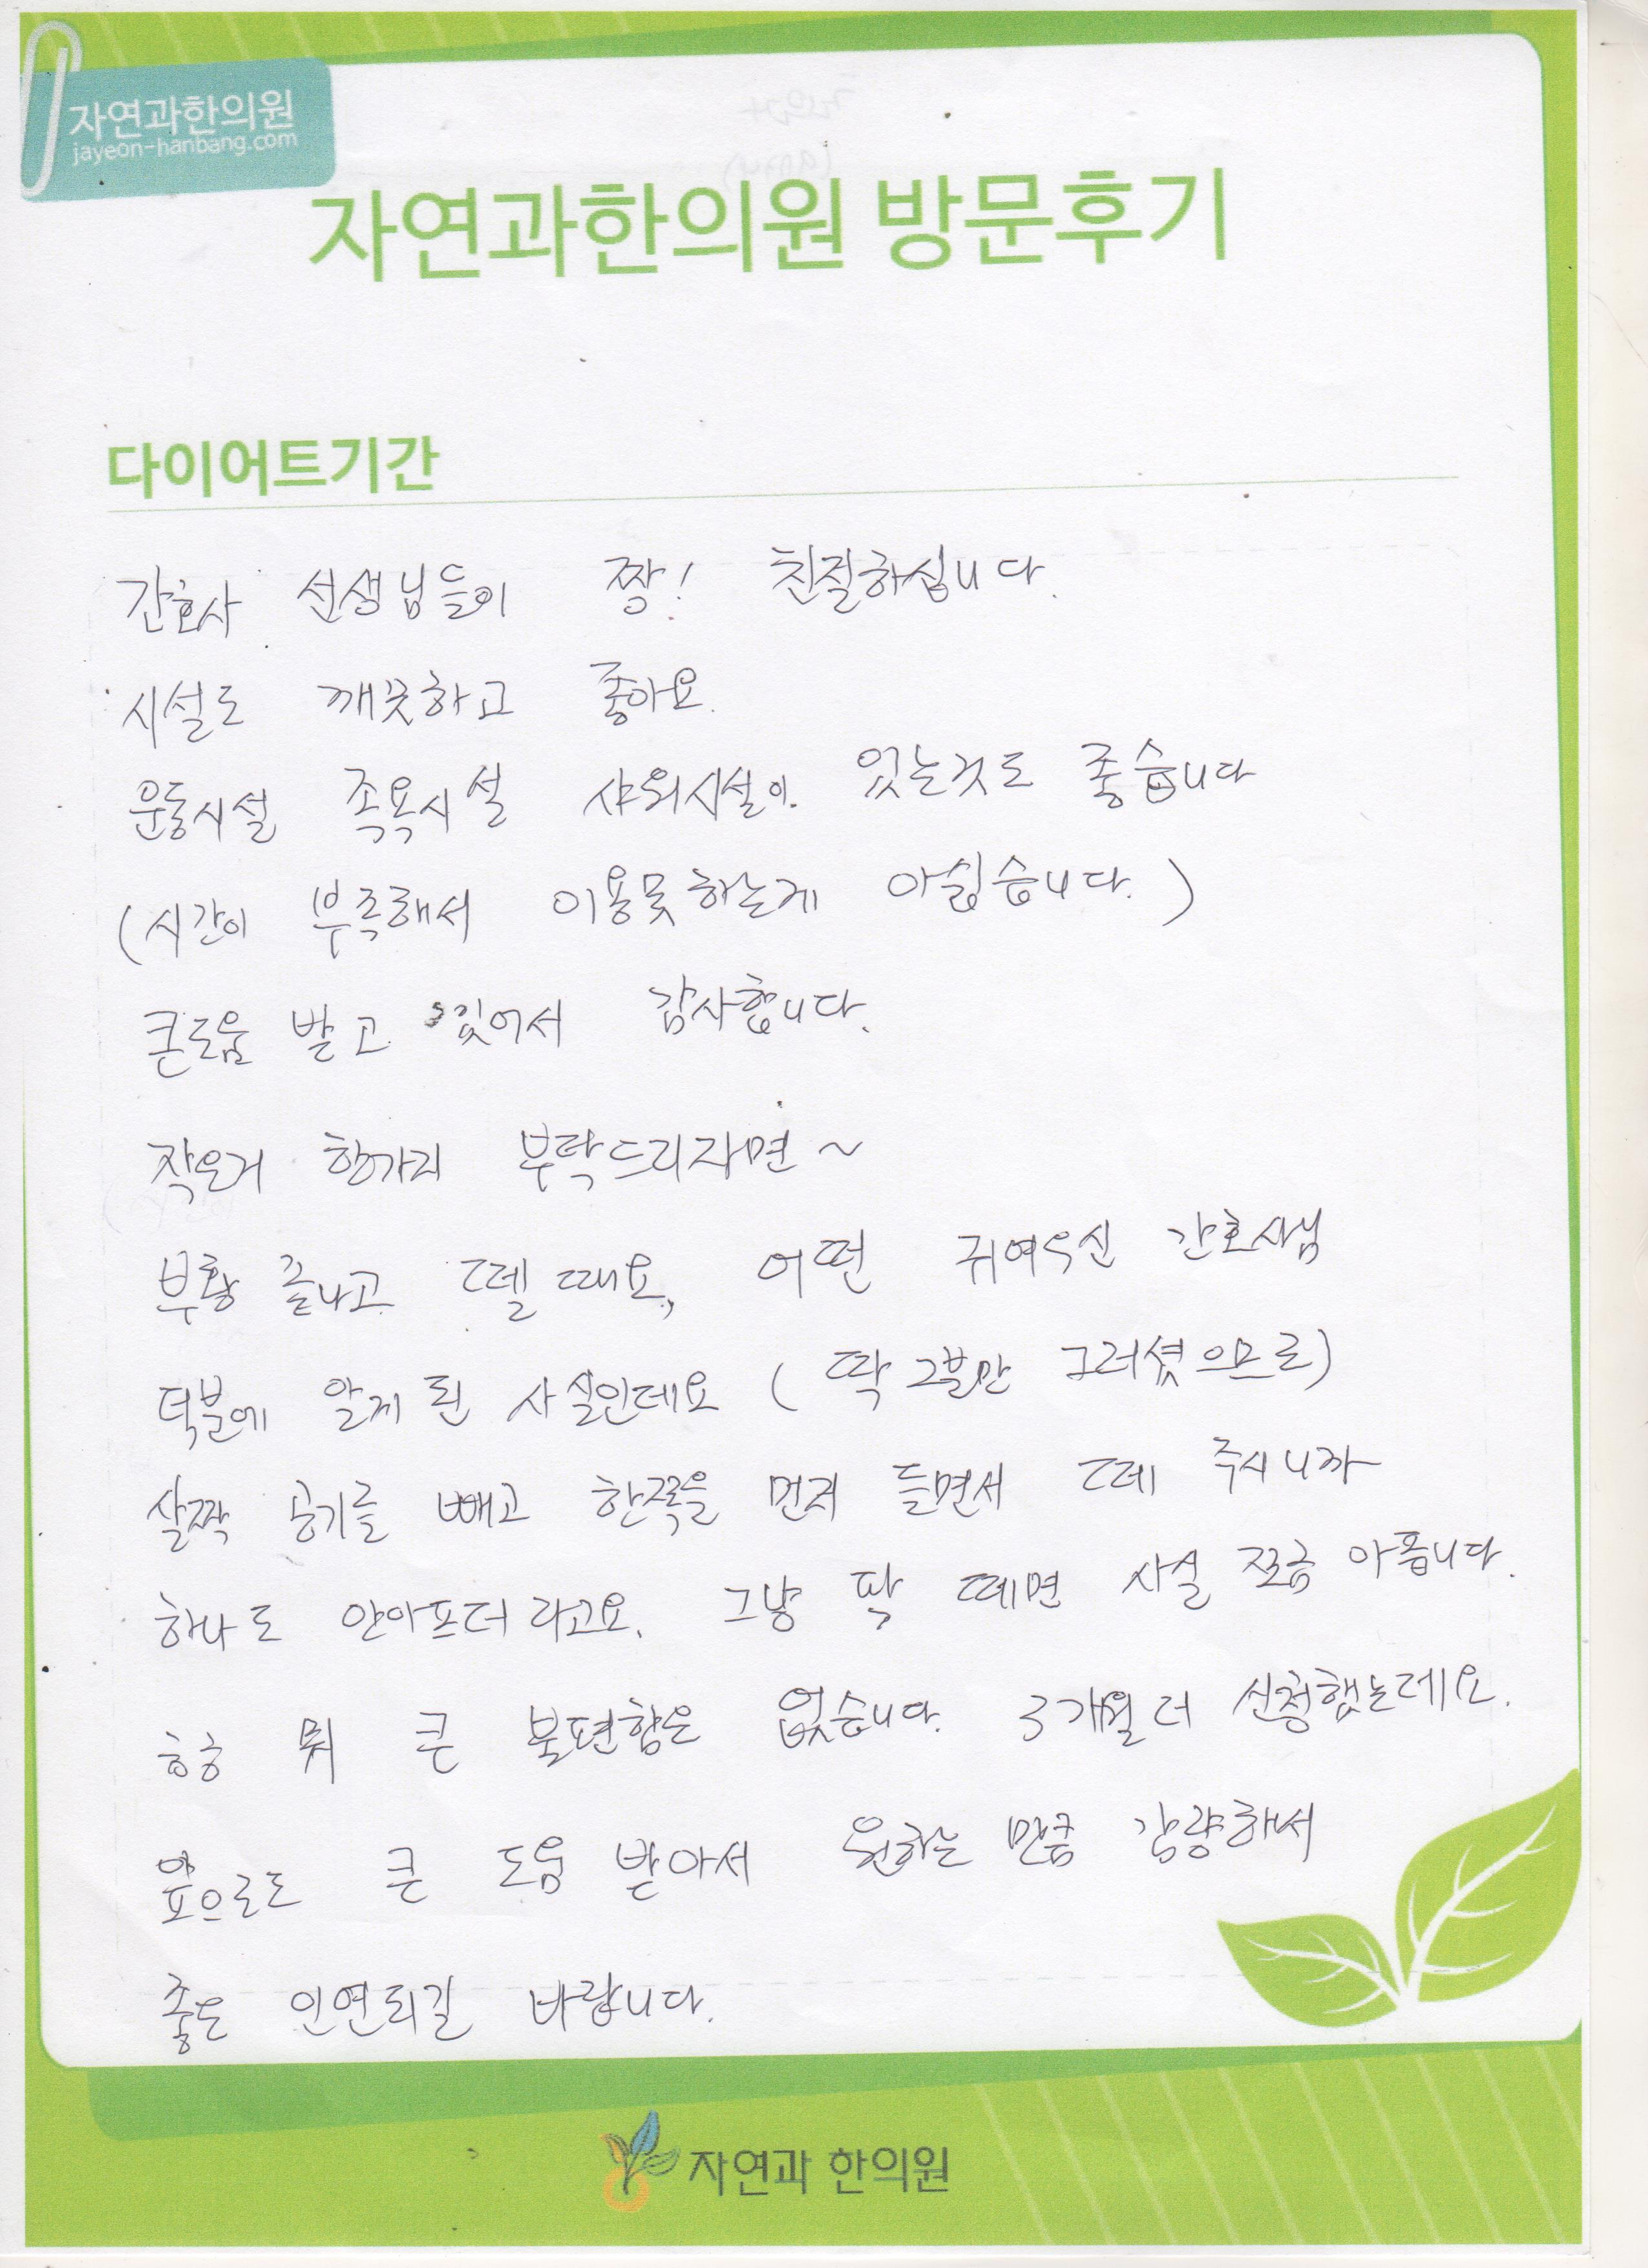 자연과한의원
jayeon-hanbang.com
자연과한의원 방문후기
다이어트기간
간호사 선생님들이 짱! 친절하십니다.
시설도 깨끗하고 좋아요.
운동시설 족욕시설 샤워시설이 있는것도 좋습니다
(시간이 부족해서 이용못하는게 아쉽습니다.)
큰도움 받고 있어서 감사합니다.
작은거 한가지 부탁드리자면~
부황 끝나고 뗄때요, 어떤 귀여우신 간호사님
덕분에 알게된 사실인데요 (딱 그분만 그러셨으므로)
살짝 공기를 빼고 한쪽을 먼저 들면서 떼 주시니까
하나도 안아프더라고요. 그냥 딱 떼면 사실 쪼금 아픕니다.
뭐 큰 불편함은 없습니다. 3개월 더 신청했는데요.
앞으로도 큰 도움 받아서 원하는 만큼 감량해서
좋은 인연되길 바랍니다.
자연과 한의원